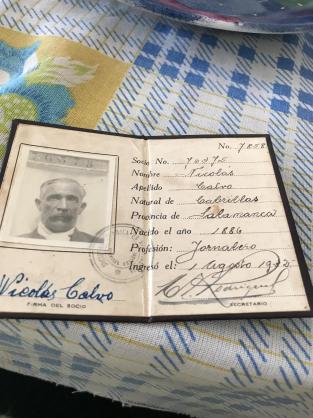 No. 7858
Socio No.
Nombre Nicolás
Apellido Calvo
Natural de Cabrillas
Provincia de Salamanca
Nacido el año 1886
Profesión: Jornalero
Ingresó el: 1
SECRETARIO
Nicolás Calvo
FIRMA DEL SOCIO